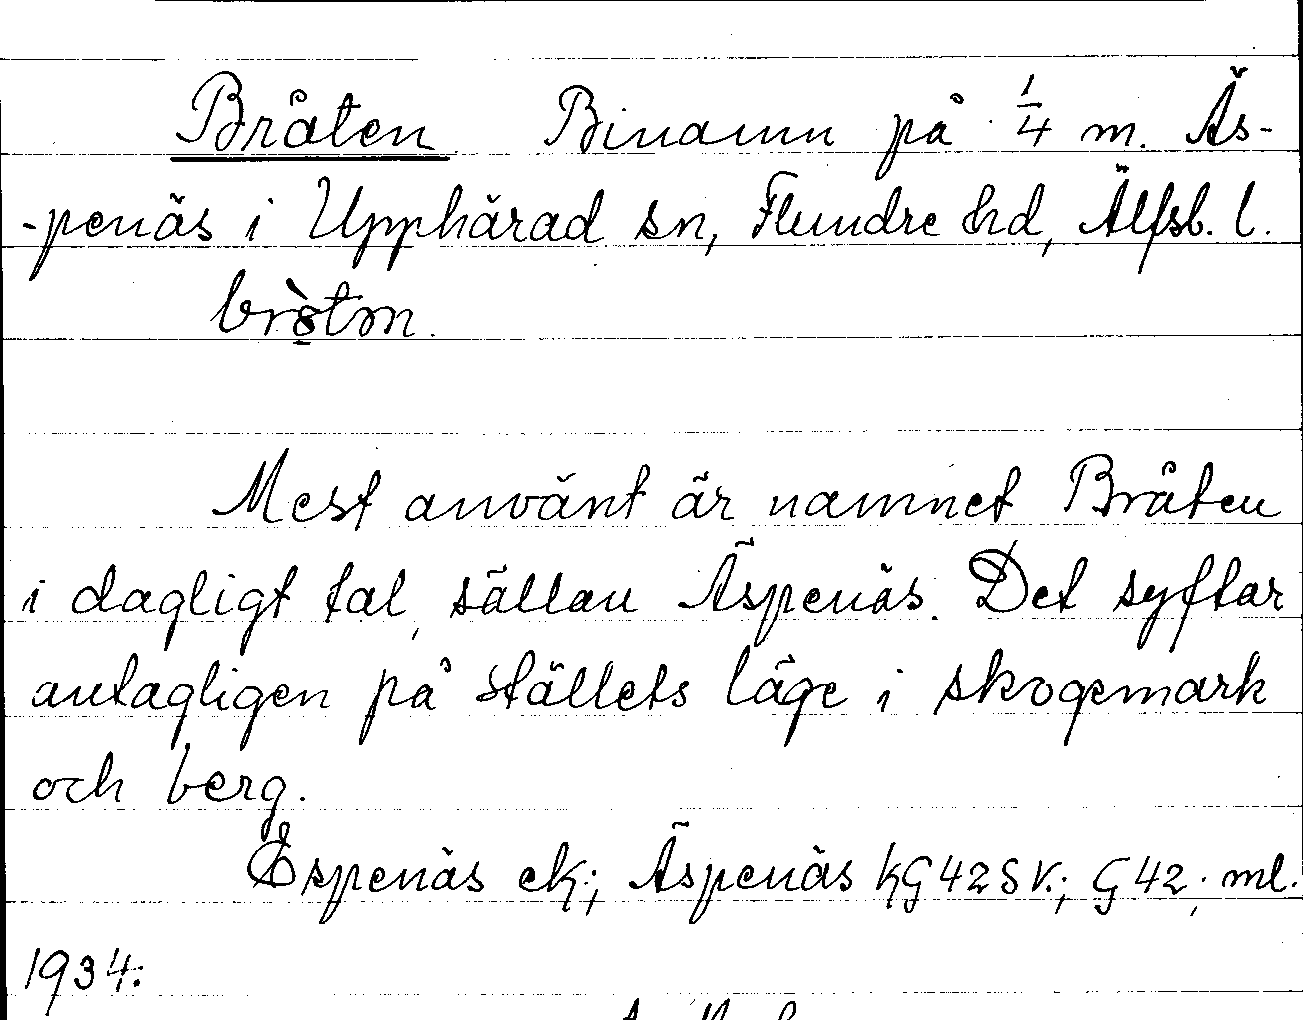 Bråten Binamn på 1/4 m. Äs-
-penäs i Upphärad sn, Flundre hd, Älfsb. l.
bròtm.
Mest använt är namnet Bråten
i dagligt tal, sällan Äspenäs. Det syftar
antagligen på ställets läge i skogemark
och berg.
Espenäs ek.; Äspenäs KG 42 SV.; G 42; ml.
1934.